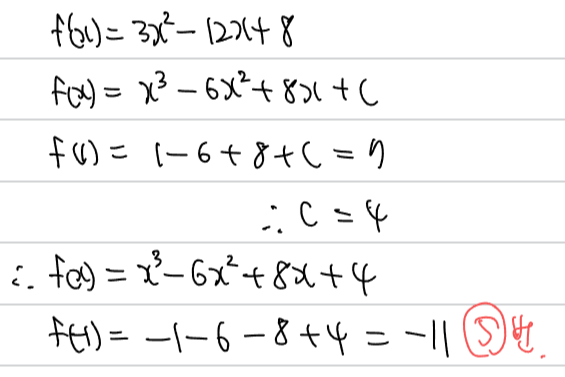 f(x) = 3x² - 12x + 8
f(x) = x³ - 6x² + 8x + C
f(1) = 1 - 6 + 8 + C = 7
∴ C = 4
∴ f(x) = x³ - 6x² + 8x + 4
f(-1) = -1 - 6 - 8 + 4 = -11 ⑤번.